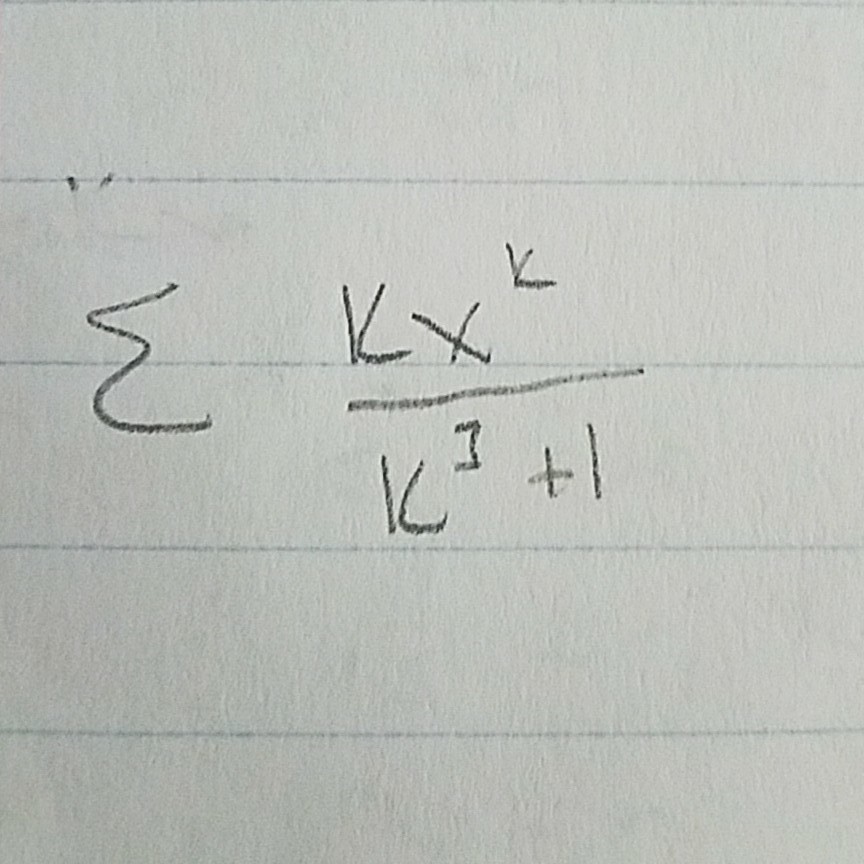 Σ kx^k / k^3 + 1